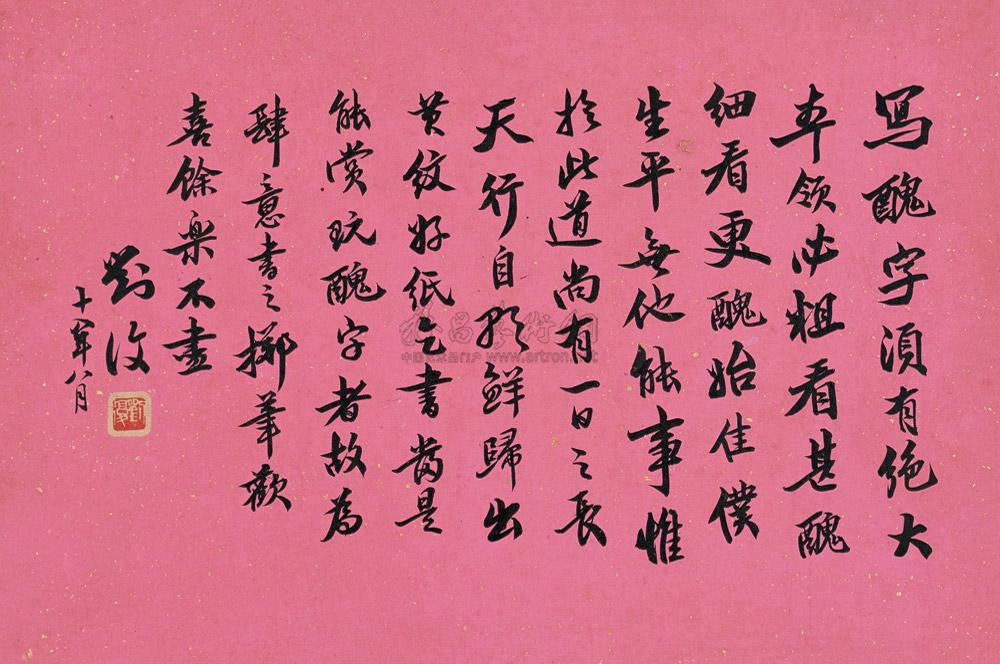 寫醜字須有絕大
本領必粗看甚醜
細看更醜始佳僕
生平無他能事惟
於此道尚有一日之長
天行自鄂鮮歸出
黄紋好紙乞書當是
能賞玩醜字者故為
肆意書之擲筆歡
喜餘樂不盡
劉復
十八年八月
雅昌藝術網
www.artron.net